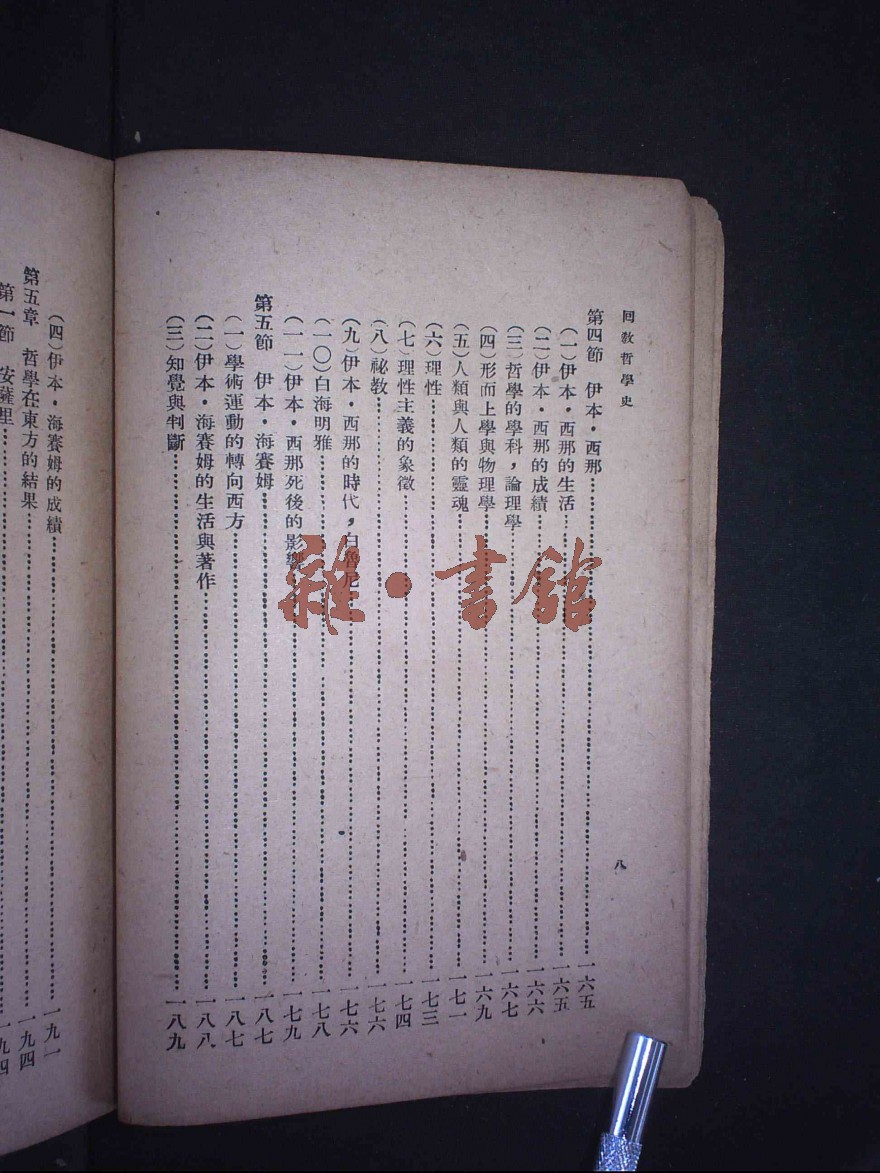 回教哲學史
八
第四節 伊本・西那……一六五
(一)伊本・西那的生活……一六五
(二)伊本・西那的成績……一六六
(三)哲學的學科,論理學……一六七
(四)形而上學與物理學……一六九
(五)人類與人類的靈魂……一七一
(六)理性……一七三
(七)理性主義的象徵……一七四
(八)祕教……一七六
(九)伊本・西那的時代,白魯尼……一七六
(一〇)白海明雅……一七八
(一一)伊本・西那死後的影響……一七九
第五節 伊本・海賽姆……一八七
(一)學術運動的轉向西方……一八七
(二)伊本・海賽姆的生活與著作……一八八
(三)知覺與判斷……一八九
(四)伊本・海賽姆的成績……一九一
第五章 哲學在東方的結果……一九四
第一節 安薩里……一九四
雜・書館